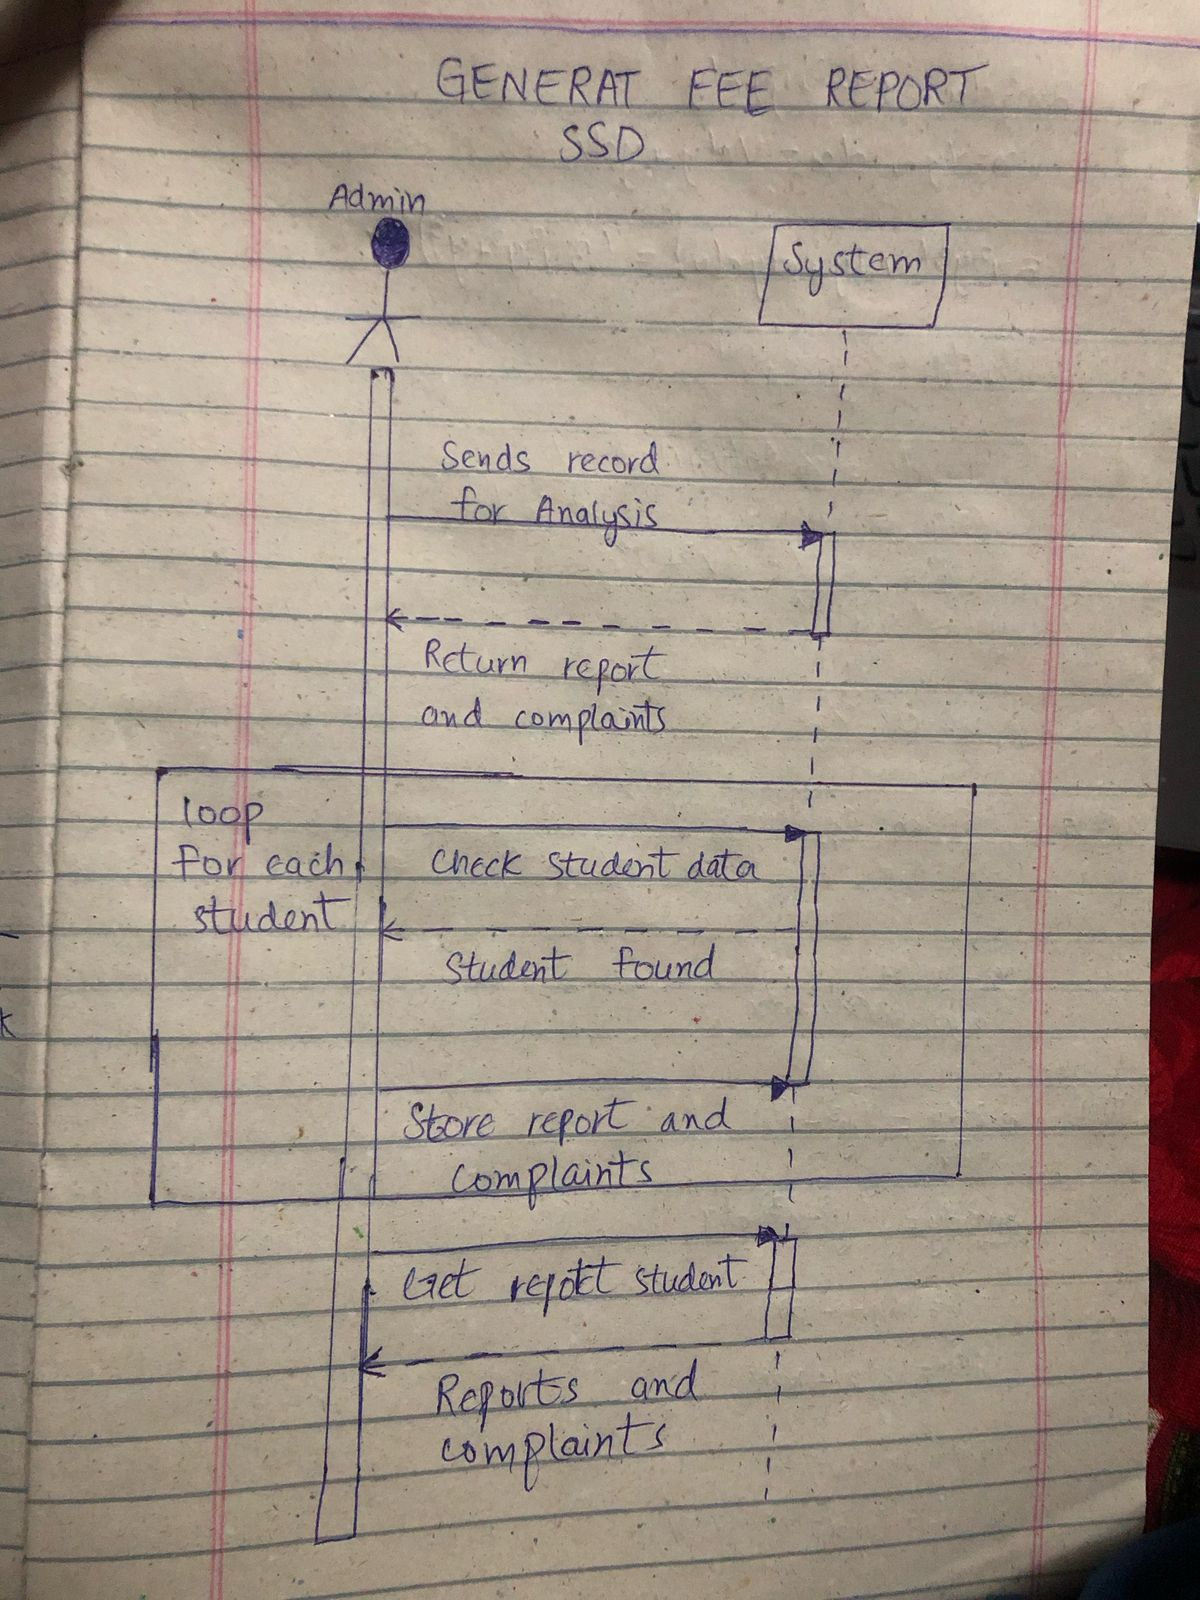 GENERAT FEE REPORT
SSD
Admin
System
Sends record
for Analysis
Return report
and complaints
loop
for each
student
Check student data
Student found
Store report and
complaints
Get report student
Reports and
complaints